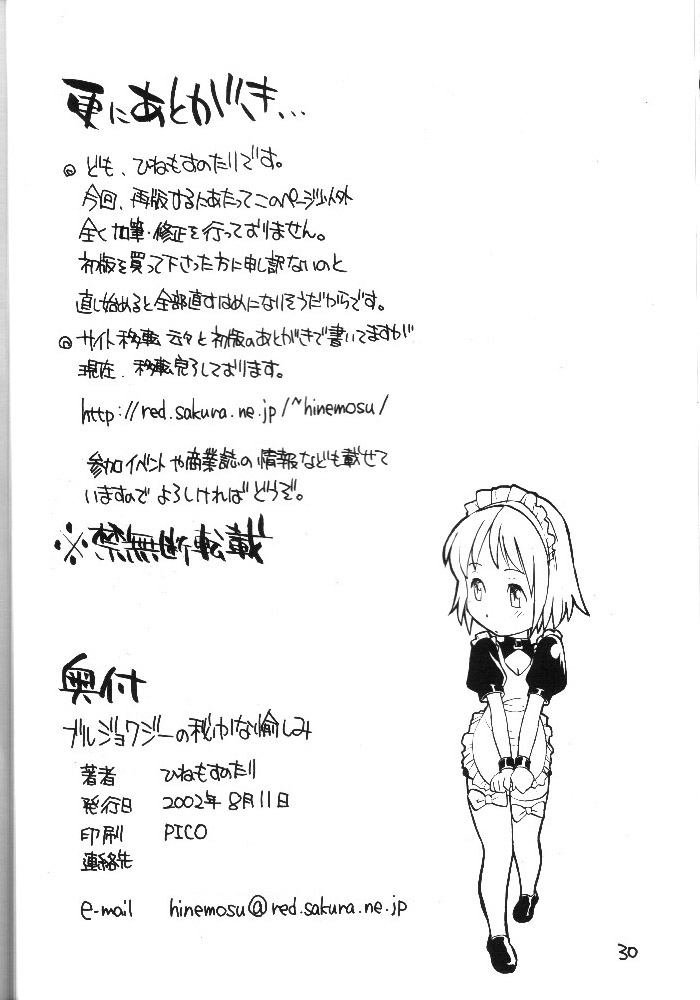 更にあとがき...
◎ ども、ひねもすのたりです。
今回、再版するにあたってこのページ以外
全く加筆・修正を行っておりません。
初版を買って下さった方に申し訳ないのと
直し始めると全部直すはめになりそうだからです。
◎ サイト移転云々と初版のあとがきで書いてますが
現在、移転完了しております。
http://red.sakura.ne.jp/~hinemosu/
参加イベントや商業誌の情報なども載せて
いますので よろしければどうぞ。
※禁無断転載
奥付
ブルジョワジーの秘かな愉しみ
著者 ひねもすのたり
発行日 2002年8月11日
印刷 PICO
連絡先
e-mail hinemosu@red.sakura.ne.jp
30